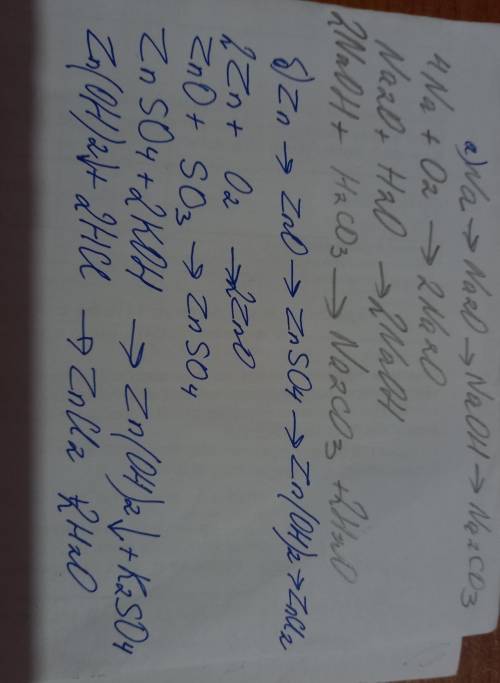 а) Na → Na2O → NaOH → Na2CO3
4Na + O2 → 2Na2O
Na2O + H2O → 2NaOH
2NaOH + H2CO3 → Na2CO3 + 2H2O
б) Zn → ZnO → ZnSO4 → Zn(OH)2 → ZnCl2
2Zn + O2 → 2ZnO
ZnO + SO3 → ZnSO4
ZnSO4 + 2KOH → Zn(OH)2↓ + K2SO4
Zn(OH)2↓ + 2HCl → ZnCl2 + 2H2O